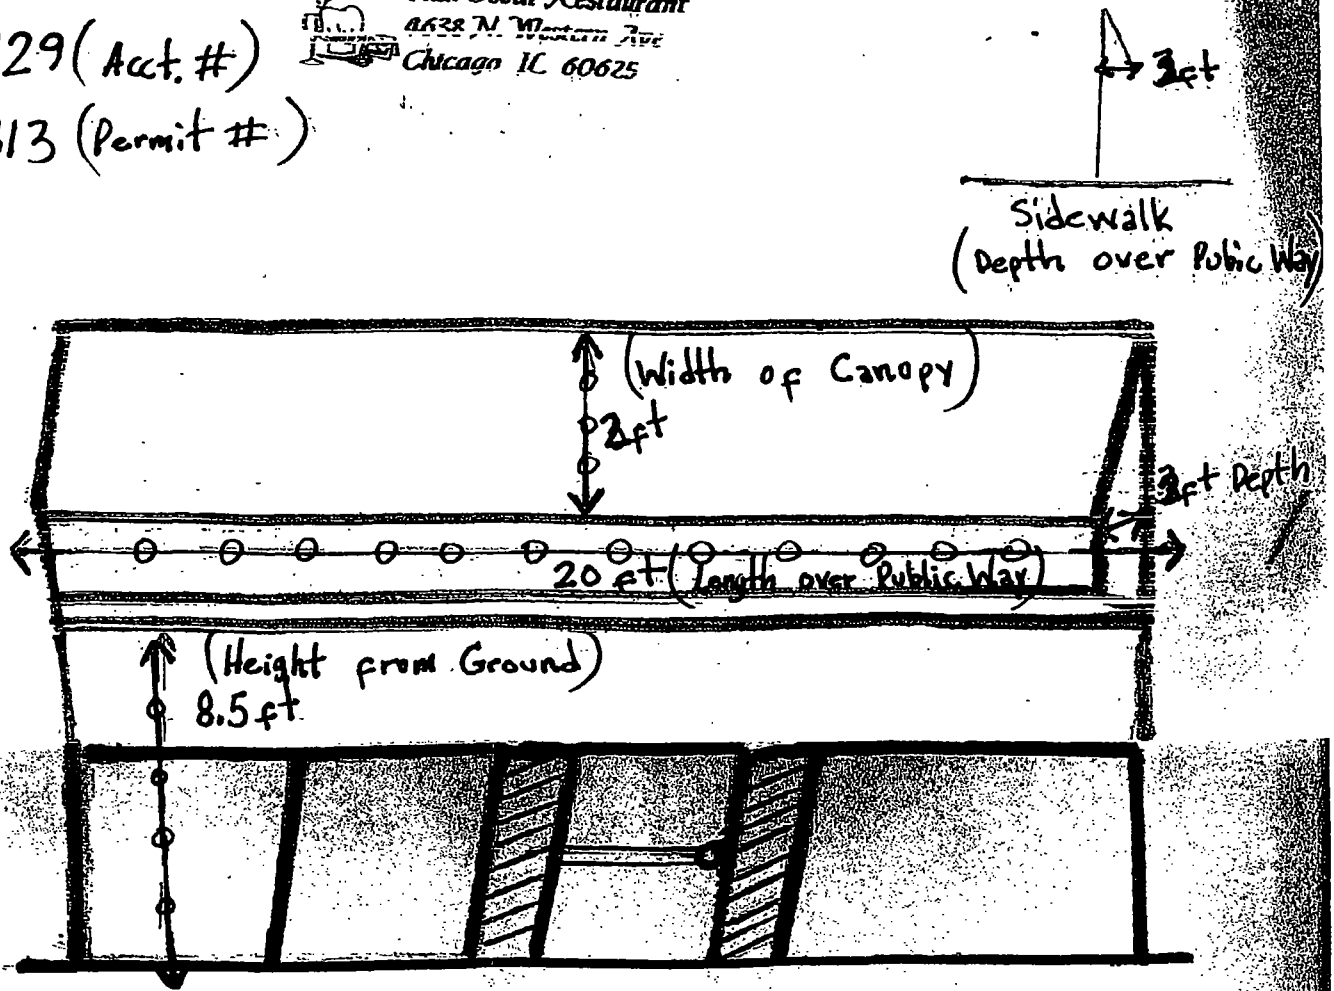 29 (Acct. #)
Restaurant
4638 N. Western Ave
Chicago IL 60625
13 (Permit #)
ft
Sidewalk
(Depth over Pubic Way)
(Width of Canopy)
ft
ft Depth
20 ft (Length over Public Way)
(Height from Ground)
8.5 ft